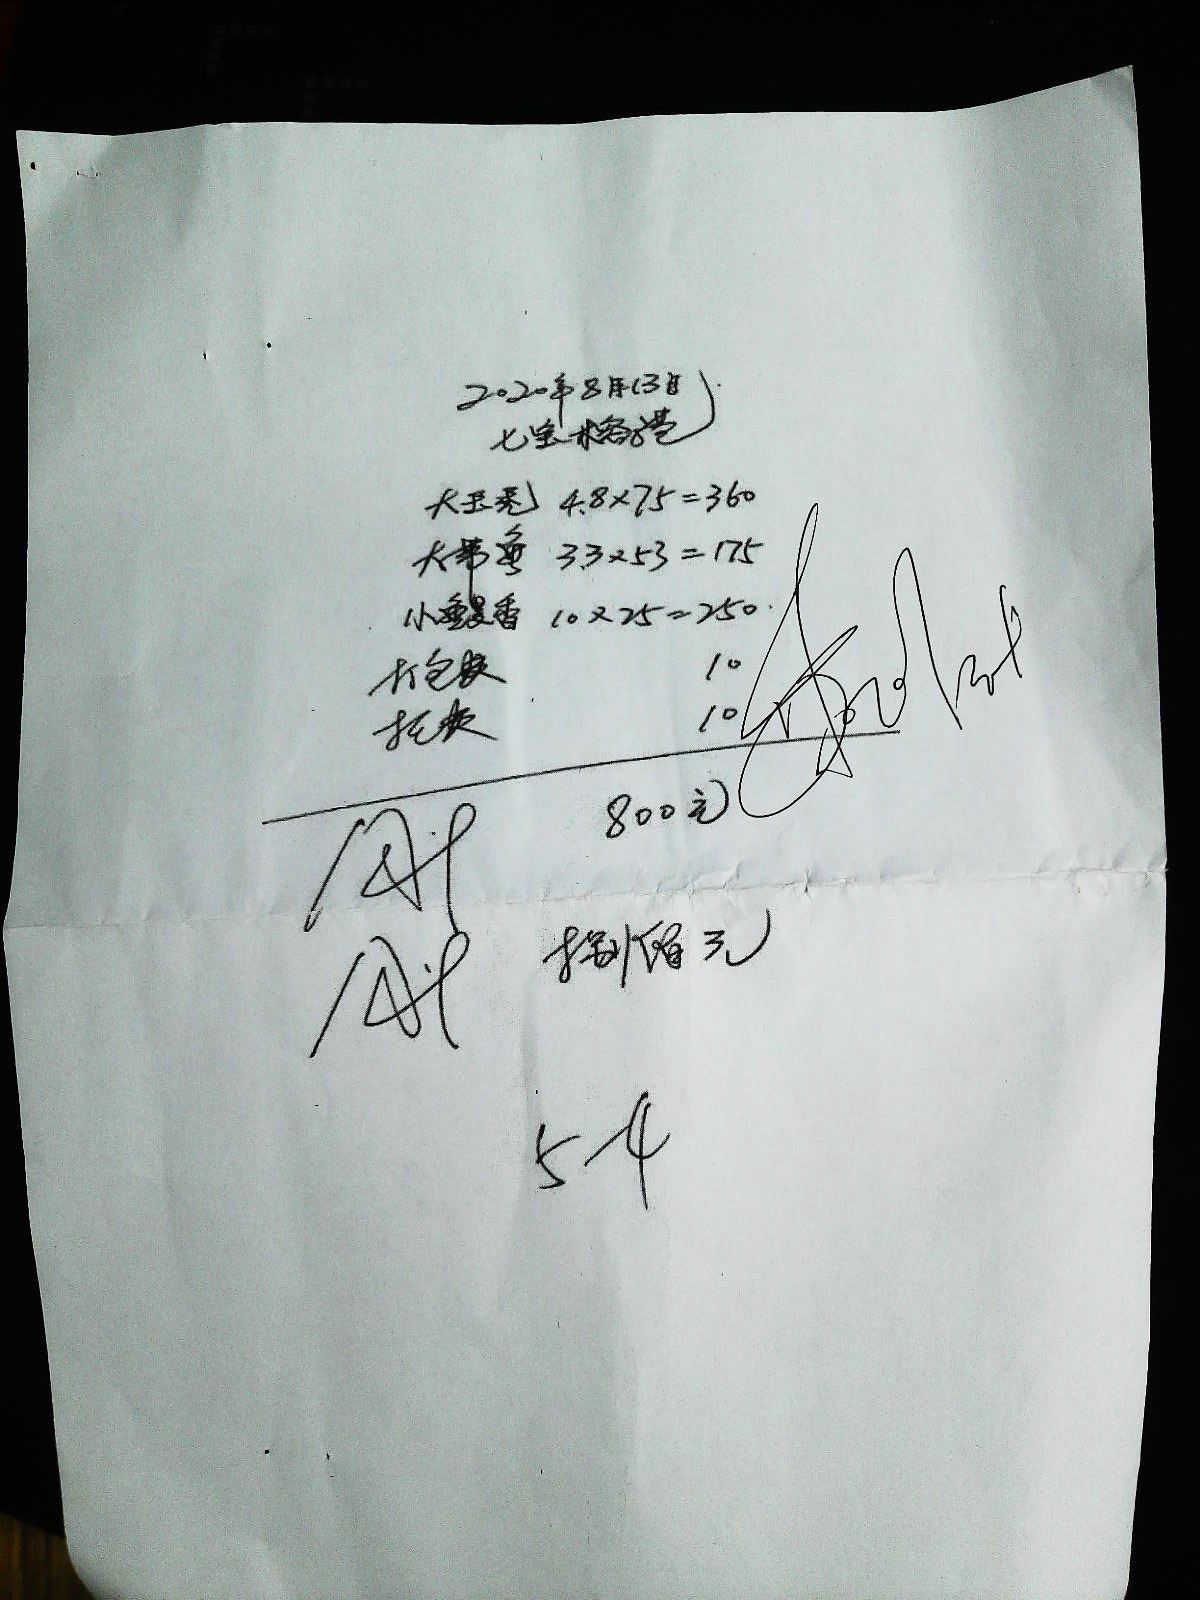 2020年8月13日
七宝榕港
大玉亮 4.8×75=360
大带鱼 3.3×53=175
小鳗香 10×25=250
打包费 10
托费 10
800元
捌佰元
5-4